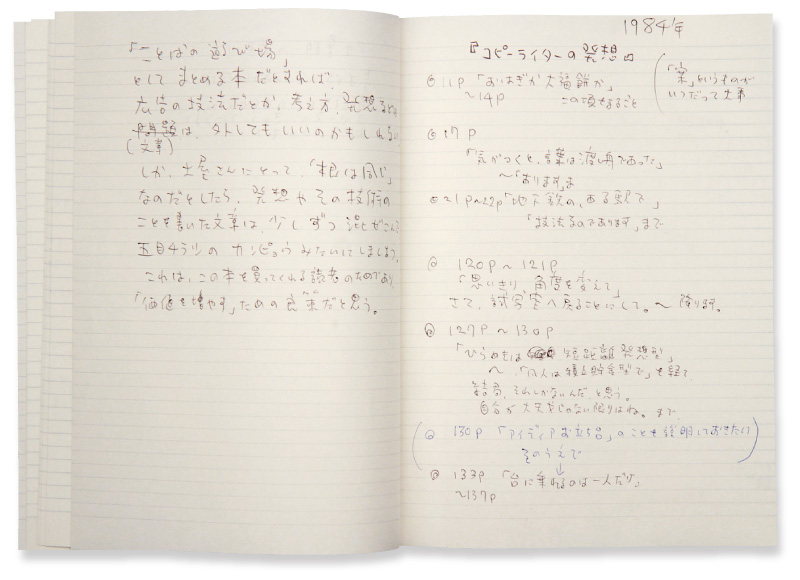 「ことばの遊び場」
としてまとめる本だとすれば、
広告の技法だとか、考え方、発想などの
問題は、外してもいいのかもしれない
(文章)
しか、土屋さんにとって、「根は同じ」
なのだとしたら、発想やその技術の
ことを書いた文章は、少しずつ混ぜこんで
五目ずしの カンピョウみたいにしましょう。
これは、この本を買ってくれる読者のためであり、
「価値を増やす」ための良策だと思う。
1984年
『コピーライターの発想』
11P 「おはぎが大福餅か」
〜14P この項まるごと
「案」というものが
いつだって大事
17P
「気がつくと、言葉は渡し舟であった」
〜「あります」ま
21P〜22P「地下鉄の、ある駅で」
「技法るのであります」まで
120P〜121P
「思いきり、角度を変えて」
さて、試写室へ戻ることにして。〜 降ります。
127P〜130P
「ひらめきは 短距離発想型」
〜 「凡人は積る貯金型で」を経て
結局、それしかないんだ、と思う。
自分が大天才じゃない限りはね。まで
130P 「アイディアお立ち台」のことも説明しておきたい
そのうえで
↓
133P 「台に乗れるのは一人だけ」
〜137P